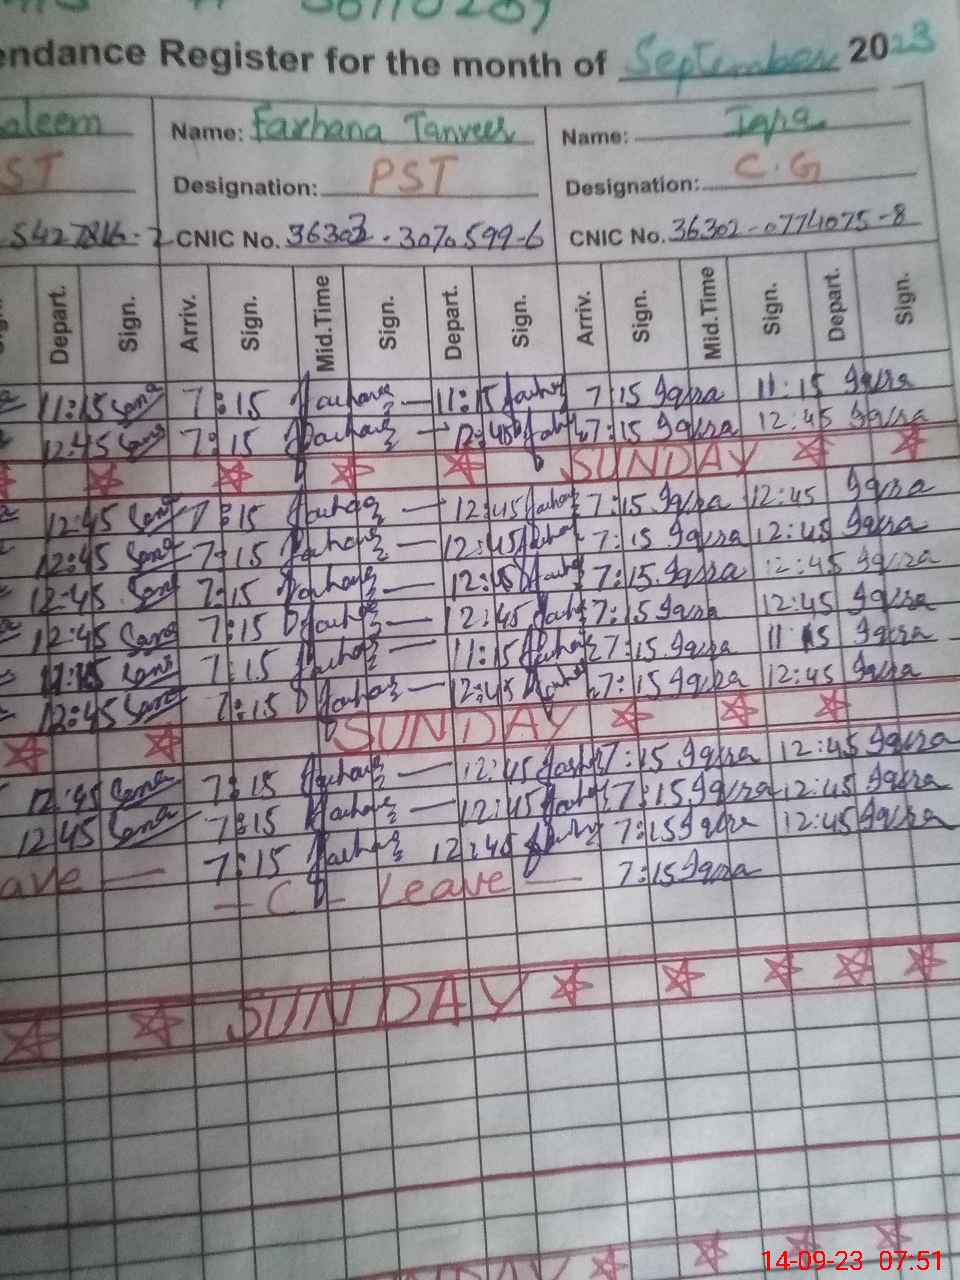 endance Register for the month of September 2023
aleem Name: Farhana Tanveer Name: Iqra
ST Designation: PST Designation: C.G
CNIC No. 36302-3070599-6 CNIC No. 36302-0774075-8
Depart. Sign. Arriv. Sign. Mid.Time Sign. Depart. Sign. Arriv. Sign. Mid.Time Sign. Depart. Sign.
11:15 Sana 7:15 Farhana — 11:15 Farhana 7:15 Iqra 11:15 Iqra
12:45 Sana 7:15 Farhana — 12:45 Farhana 7:15 Iqra 12:45 Iqra
SUNDAY
12:45 Sana 7:15 Farhana — 12:45 Farhana 7:15 Iqra 12:45 Iqra
12:45 Sana 7:15 Farhana — 12:45 Farhana 7:15 Iqra 12:45 Iqra
12:45 Sana 7:15 Farhana — 12:45 Farhana 7:15 Iqra 12:45 Iqra
12:45 Sana 7:15 Farhana — 12:45 Farhana 7:15 Iqra 12:45 Iqra
11:15 Sana 7:15 Farhana — 11:15 Farhana 7:15 Iqra 11:15 Iqra
12:45 Sana 7:15 Farhana — 12:45 Farhana 7:15 Iqra 12:45 Iqra
SUNDAY
12:45 Sana 7:15 Farhana — 12:45 Farhana 7:15 Iqra 12:45 Iqra
12:45 Sana 7:15 Farhana — 12:45 Farhana 7:15 Iqra 12:45 Iqra
7:15 Farhana 12:45 Farhana 7:15 Iqra 12:45 Iqra
ave — — C – Leave — 7:15 Iqra
SUNDAY
14-09-23 07:51